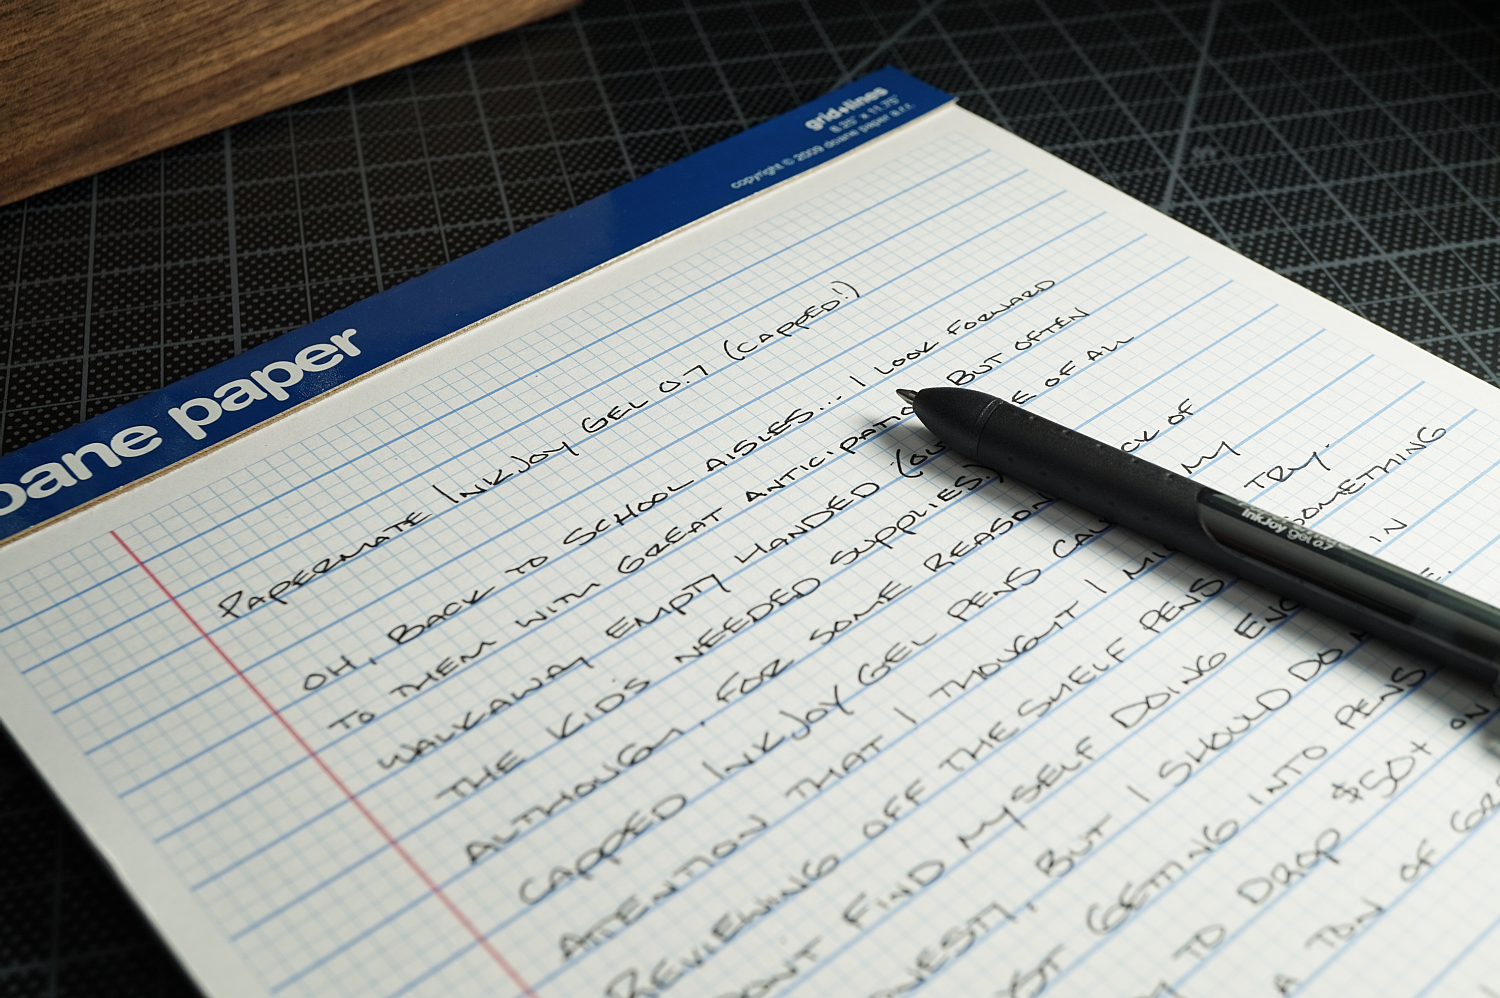 grid+lines
8.25" x 11.75"
copyright © 2009 doane paper a.r.r.
oane paper
PAPERMATE INKJOY GEL 0.7 (CAPPED!)
OH, BACK TO SCHOOL AISLES... I LOOK FORWARD
TO THEM WITH GREAT ANTICIPATIO BUT OFTEN
WALKAWAY EMPTY HANDED (OU E OF ALL
THE KIDS NEEDED SUPPLIES.)
ALTHOUGH, FOR SOME REASON CK OF
CAPPED INKJOY GEL PENS CAU MY
ATTENTION THAT I THOUGHT I MI TRY.
REVIEWING OFF THE SHELF PENS SOMETHING
DONT FIND MYSELF DOING ENO IN
NESTY, BUT I SHOULD DO E.
ST GETTING INTO PENS
TO DROP $50+ ON
A TON OF
InkJoy gel 0.7